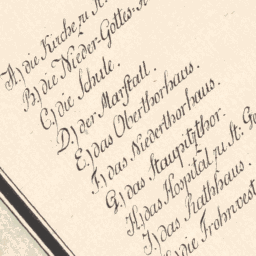 A.) die Kirche zu St.
B.) die Nieder-Gottes-A
C.) die Schule.
D.) der Marstall.
E.) das Oberthorhaus.
F.) das Niederthorhaus.
G.) das Staupitzthor.
H.) das Hospital zu St: Ge
J.) das Rathhaus.
die Frohnvest